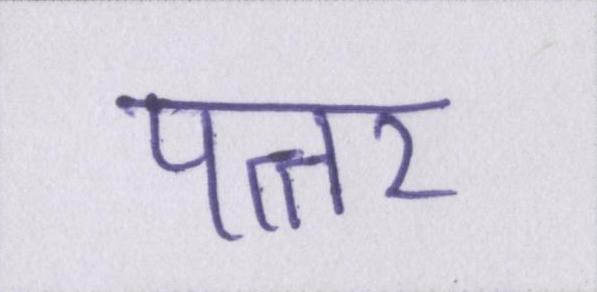 पत्तर